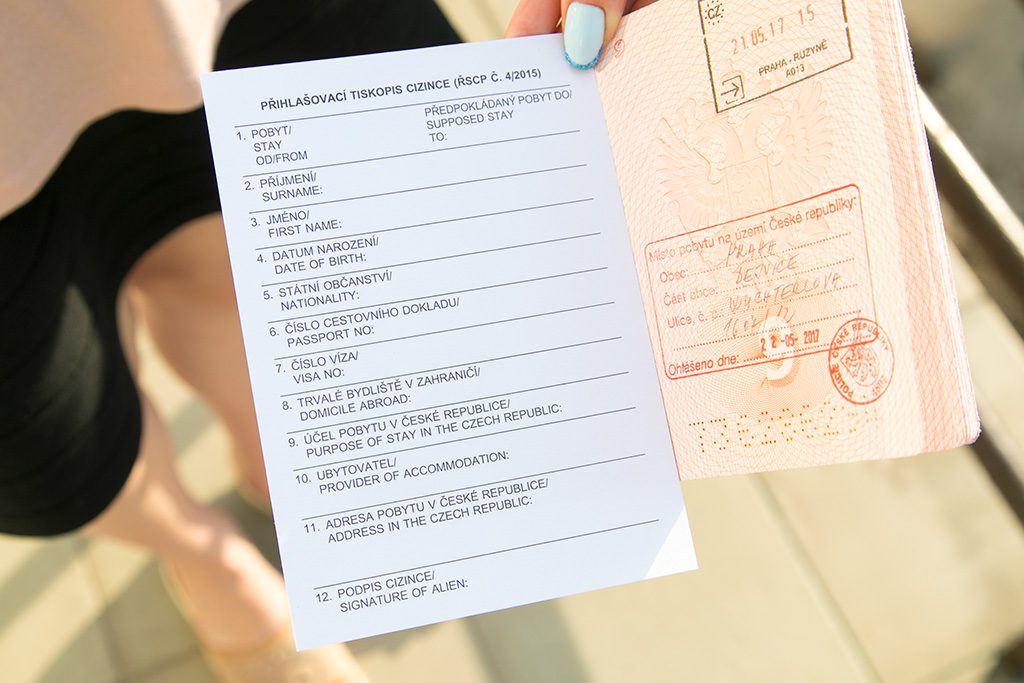 PŘIHLAŠOVACÍ TISKOPIS CIZINCE (ŘSCP Č. 4/2015)
1. POBYT/
STAY
OD/FROM
PŘEDPOKLÁDANÝ POBYT DO/
SUPPOSED STAY
TO:
2. PŘÍJMENÍ/
SURNAME:
3. JMÉNO/
FIRST NAME:
4. DATUM NAROZENÍ/
DATE OF BIRTH:
5. STÁTNÍ OBČANSTVÍ/
NATIONALITY:
6. ČÍSLO CESTOVNÍHO DOKLADU/
PASSPORT NO:
7. ČÍSLO VÍZA/
VISA NO:
8. TRVALÉ BYDLIŠTĚ V ZAHRANIČÍ/
DOMICILE ABROAD:
9. ÚČEL POBYTU V ČESKÉ REPUBLICE/
PURPOSE OF STAY IN THE CZECH REPUBLIC:
10. UBYTOVATEL/
PROVIDER OF ACCOMMODATION:
11. ADRESA POBYTU V ČESKÉ REPUBLICE/
ADDRESS IN THE CZECH REPUBLIC:
12. PODPIS CIZINCE/
SIGNATURE OF ALIEN:
CZ
21.05.17 15
PRAHA - RUZYNĚ
A013
Místo pobytu na území České republiky:
Obec: PRAHA
Část obce: DEJVICE
Ulice, č. p.: WUCHTERLOVA
Ohlášeno dne: 22-05-2017
POLICIE ČESKÉ REPUBLIKY
9